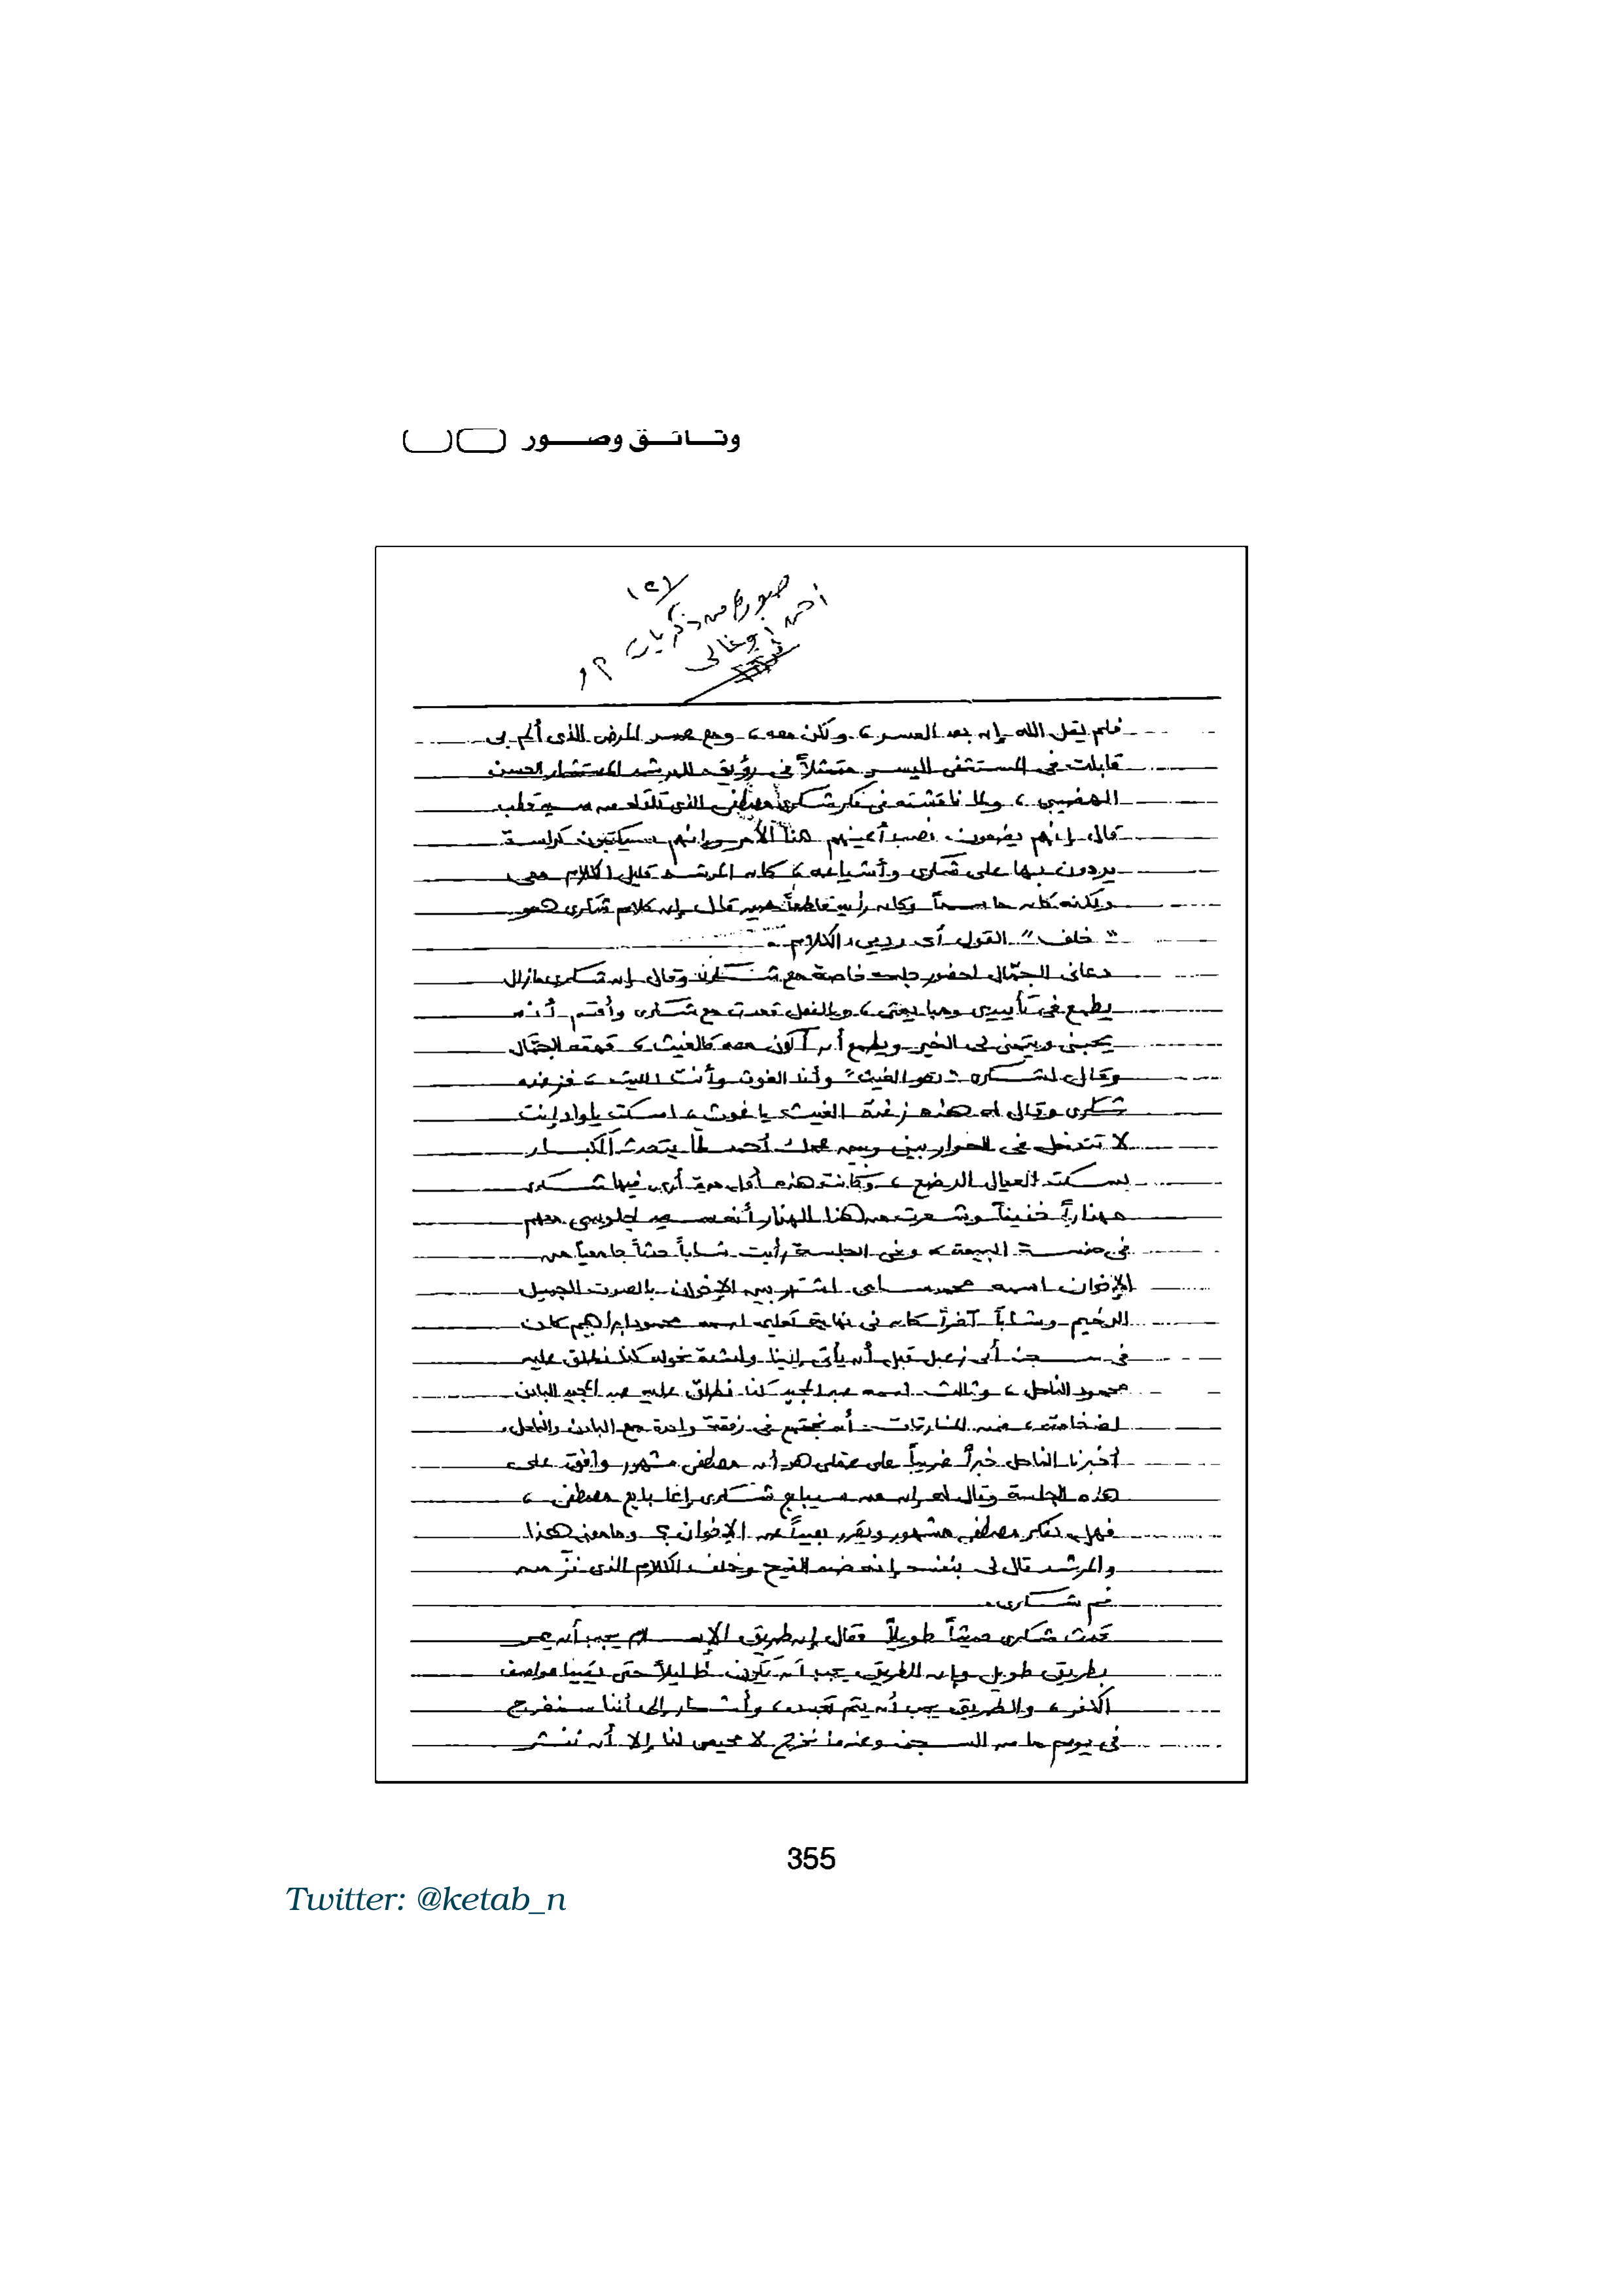 وثائق وصور
صورة من ذكريات
أحمد أبو غالى
فلم يقل الله إن بعد العسر، ولكن معه، ومع عسر المرض الذى ألم بى
قابلت فى المستشفى اليسر متمثلاً فى رؤيتى للمرشد المستشار حسن
الهضيبى، ولما ناقشته فى فكر شكرى مصطفى الذى تلقاه من سيد قطب
قال إنهم يضعون نصب أعينهم هذا الأمر وإنهم سيكتبون كراسة
يردون بها على شكرى وأشياعه، كان المرشد قليل الكلام معى
ولكنه كان حاسماً وكان رأيه قاطعاً حين قال إن كلام شكرى هو
"خلف" القول أى ردىء الكلام.
دعانى الجمّال لحضور جلسة خاصة مع شكرى وقال إن شكرى مازال
يطمع فى تأييدى ومبايعتى، وبالفعل قعدت مع شكرى وأقسم أنه
يحبنى ويتمنى لى الخير ويطمع أن أكون معه كالغيث، قهقه الجمّال
وقال لشكرى: هو الغيث وأنا الغوث وأنت الليث، فزغده
شكرى وقال له هذه زغدة الغيث يا غوث، اسكت يا واد إنت
لا تتدخل فى الحوار بينى وبين عمك أحمد لما يتحدث الكبار
يسكت العيال الرضع، وكانت هذه أول مرة أرى فيها شكرى
مهزاراً خفيفاً وشعرت من هذا الهزار أنه سعيد لجلوسى معهم
فى جلسة البيعة، وفى الجلسة رأيت شاباً حدثاً جامعياً من
الإخوان اسمه محمد سامى اشتهر بين الإخوان بالصوت الجميل
الرخيم وشاباً آخراً كان فى نهاية تعليمه اسمه محمود إبراهيم كان
فى سجن أبى زعبل قبل أن يأتى إلينا ولشدة نحوله كنا نطلق عليه
محمود الناحل، وثالث اسمه عبد المجيد كنا نطلق عليه عبد المجيد البادن
لضخامته، فمن المفارقات أن نجتمع فى رفقة واحدة مع البادن والناحل،
أخبرنا الناحل خبراً غريباً على عقلى هو أن مصطفى مشهور وافق على
هذه الجلسة وقال له إن من سيبايع شكرى إنما بايع مصطفى،
فهل يفكر مصطفى مشهور ويقرر بعيداً عن الإخوان؟ وما معنى هذا
والمرشد قال لى بنفسه إنه ضد القبح وخلف الكلام الذى نزّ من
فم شكرى.
تحدث شكرى حديثاً طويلاً فقال إن طريق الإسلام يجب أن يمر
بطريق طويل وإن الطريق يجب أن يكون ظليلاً حتى يقينا عواصف
الكفر، والطريق يجب أن يتم تعبيده، وأشار إلى أننا سنخرج
فى يوم ما من السجن وعندما نخرج لا محيص لنا إلا أن ننشر
355
Twitter: @ketab_n